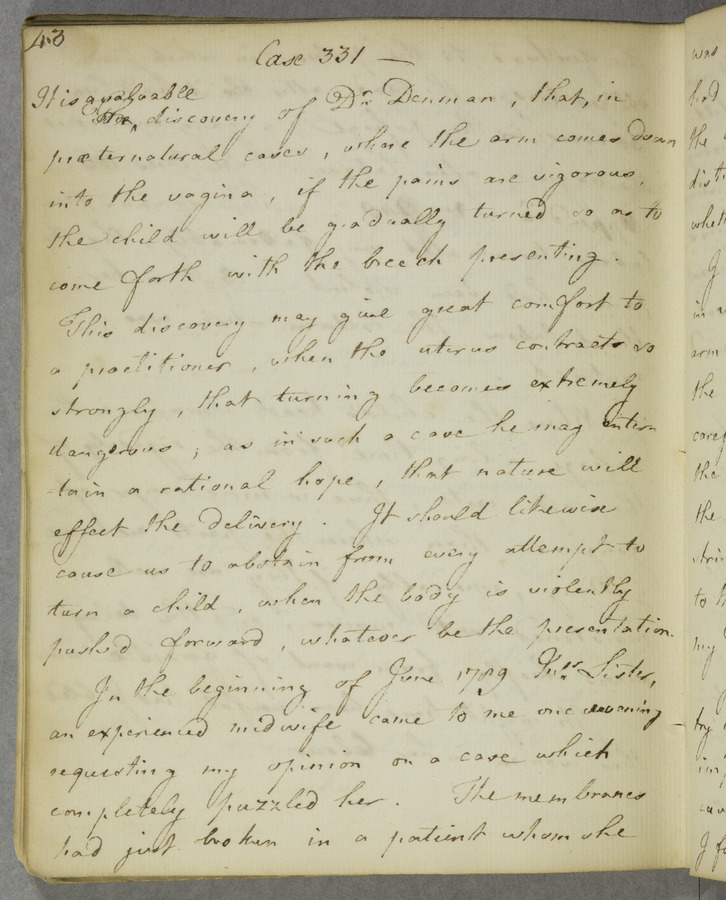 43
Case 331 —
It is a valuable
The discovery of Dr. Denman, that, in
præternatural cases, where the arm comes down
into the vagina, if the pains are vigorous,
the child will be gradually turned so as to
come forth with the breech presenting.
This discovery may give great comfort to
a practitioner, when the uterus contracts so
strongly, that turning becomes extremely
dangerous; as in such a case he may enter-
-tain a rational hope, that nature will
effect the delivery. It should likewise
cause us to abstain from every attempt to
turn a child, when the body is violently
pushed forward, whatever be the presentation.
In the beginning of June 1789 Mrs Lister,
an experienced midwife came to me one evening
requesting my opinion on a case which
completely puzzled her. The membranes
had just broken in a patient whom she
was
had
the
whet
in
arm
the
the
the
to
my
try